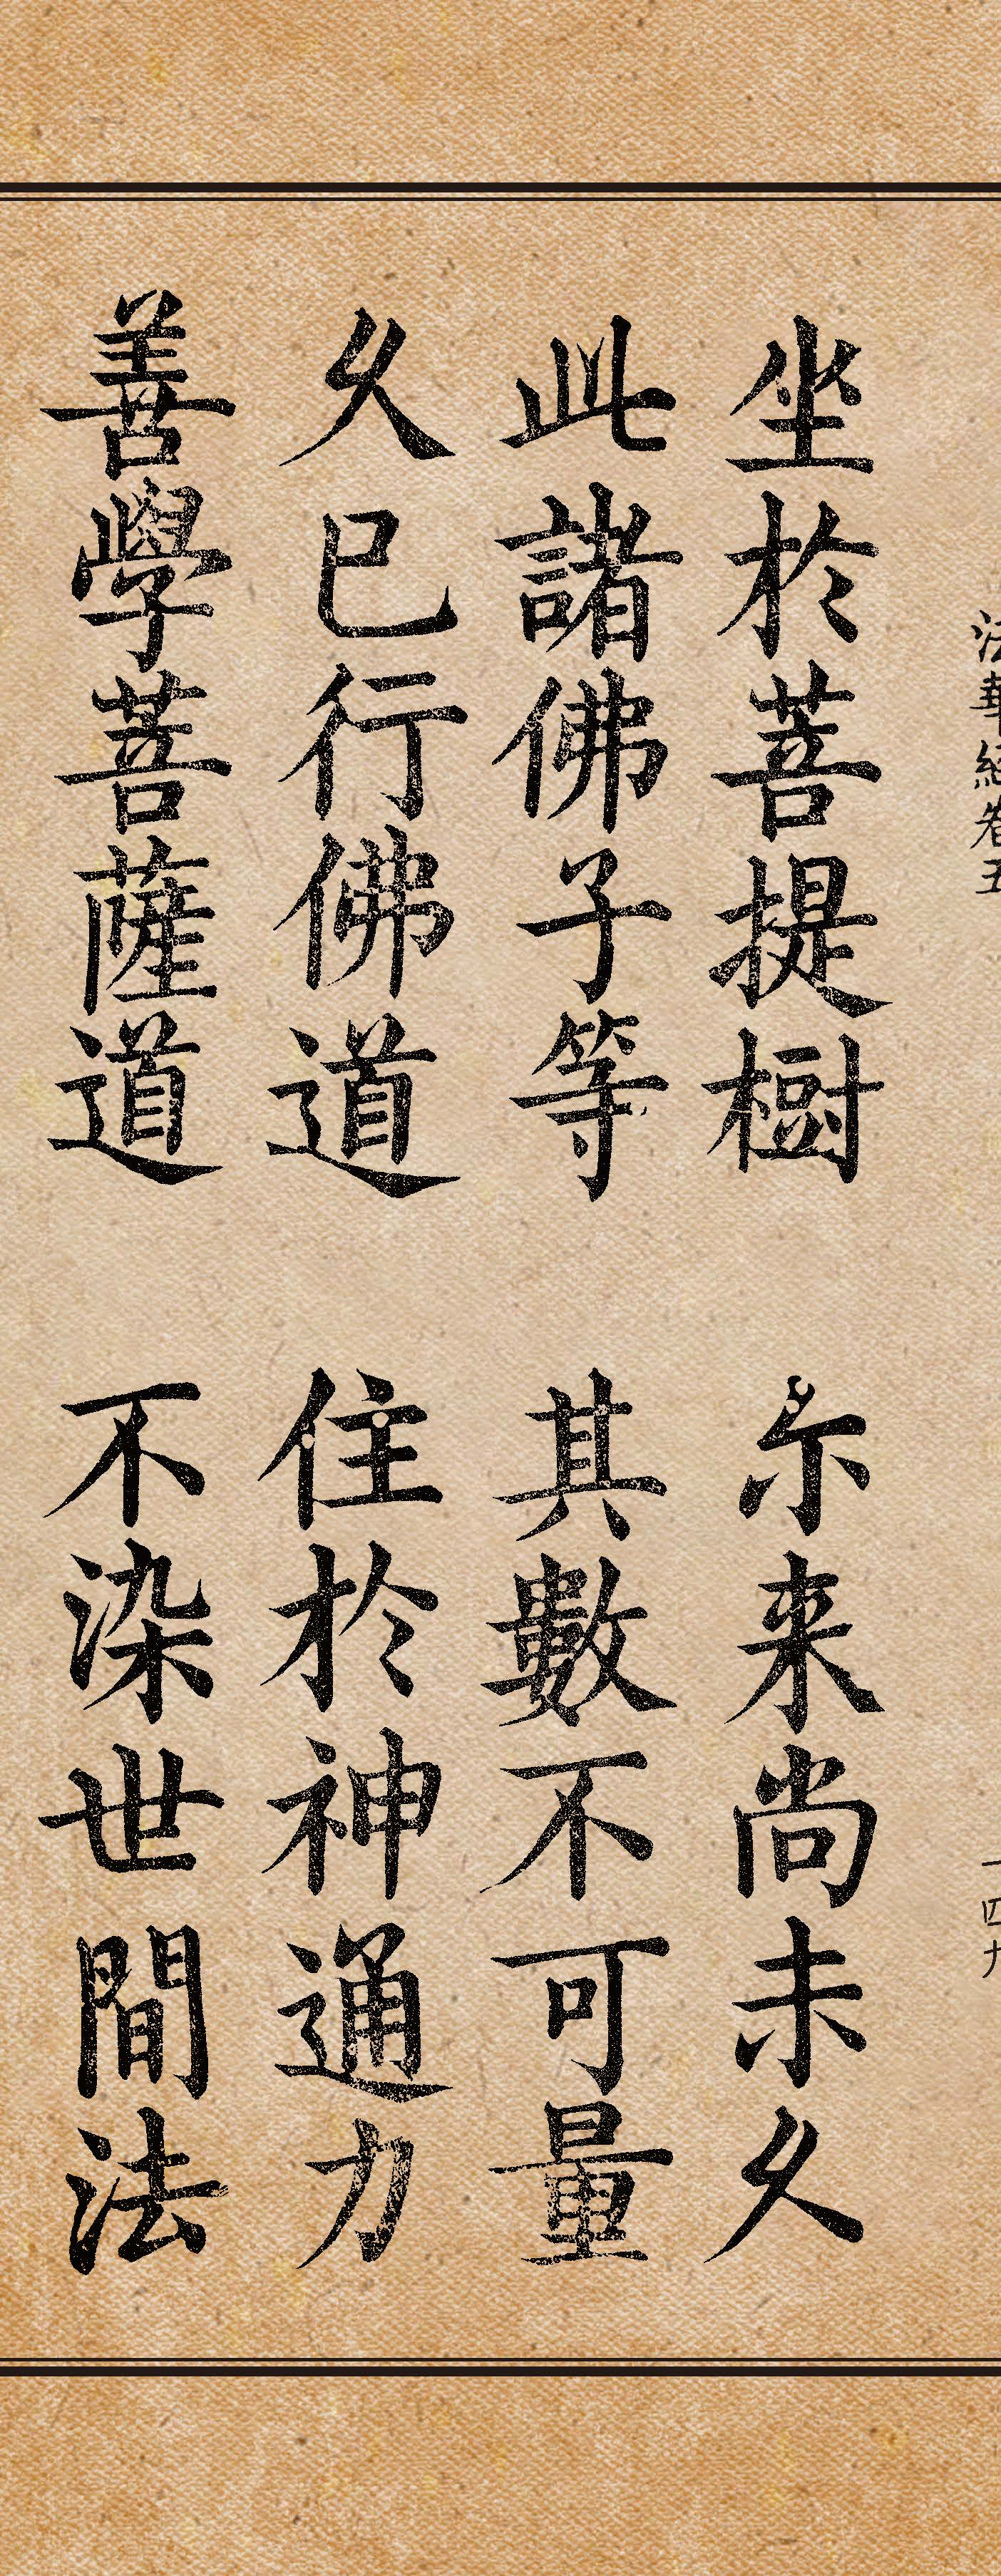 法華經卷五 一四九
坐於菩提樹 尒来尚未久
此諸佛子等 其數不可量
久已行佛道 住於神通力
善學菩薩道 不染世間法